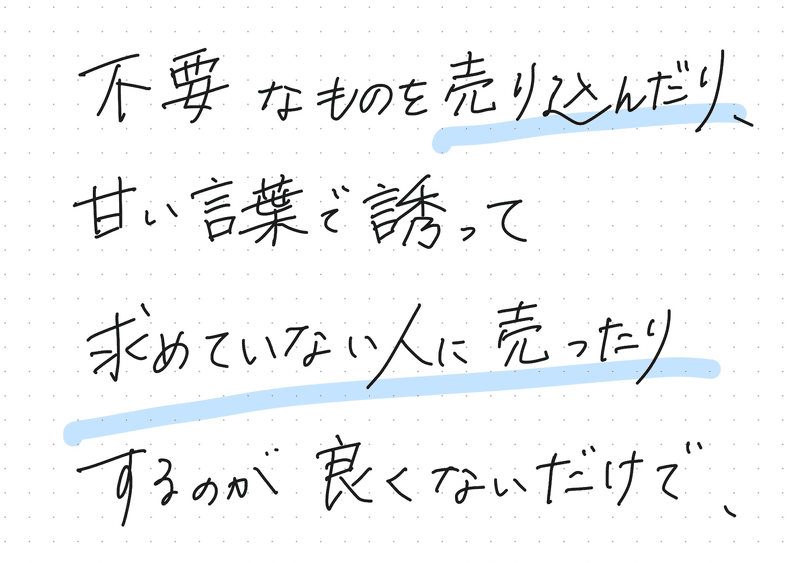 不要なものを売り込んだり、
甘い言葉で誘って
求めていない人に売ったり
するのが良くないだけで、